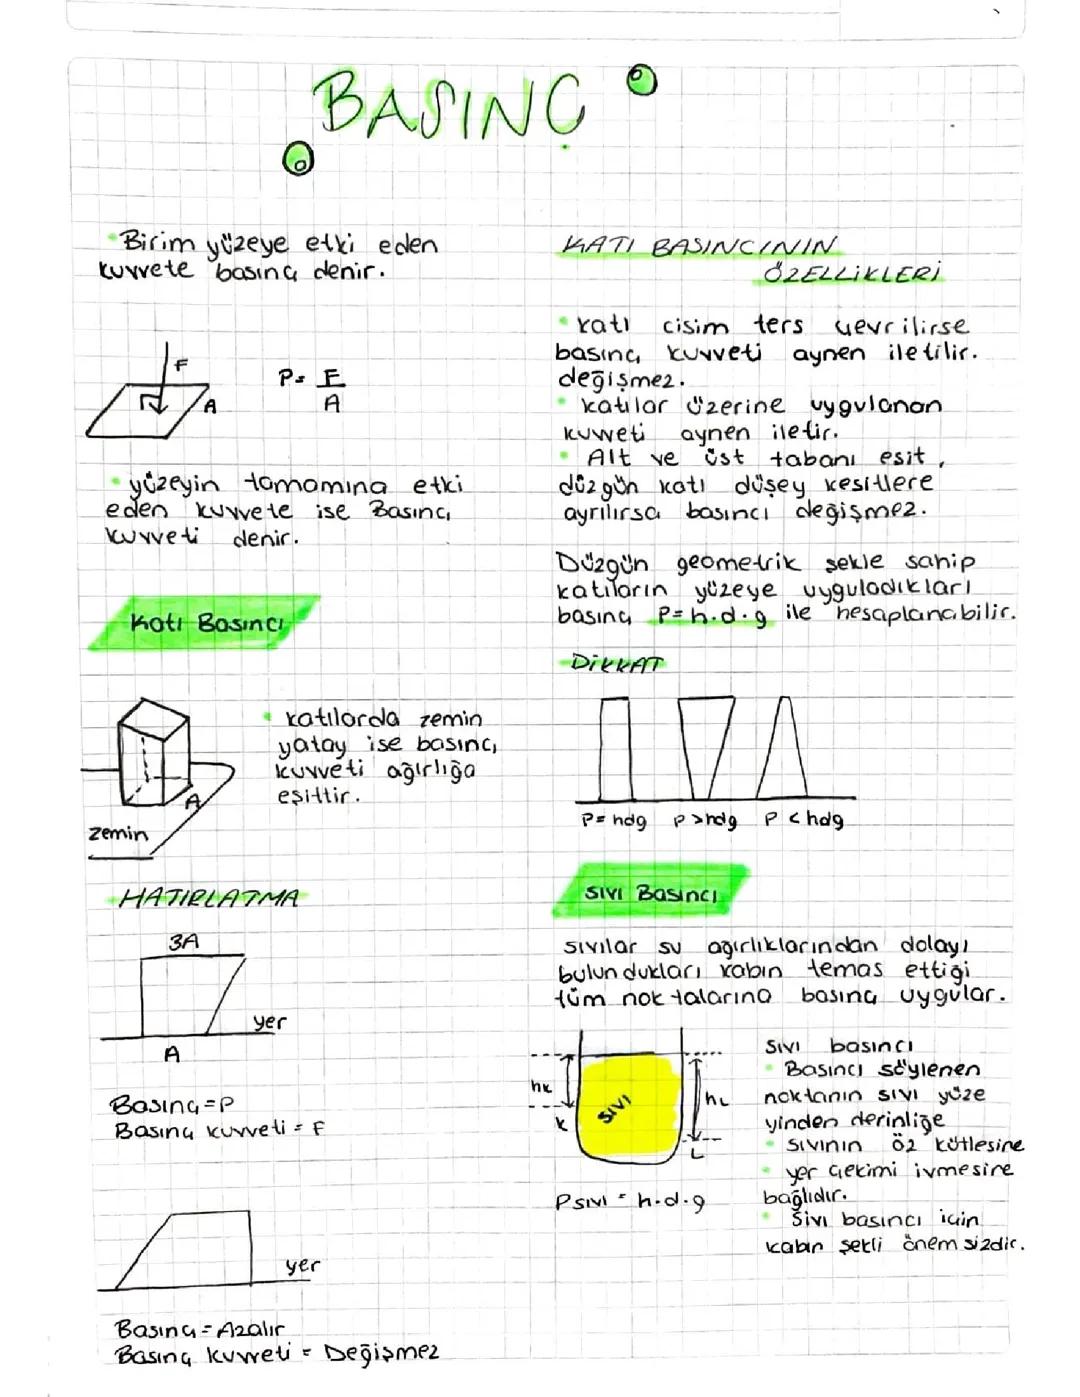 BASINÇ
• Birim yüzeye etki eden
kuvvete basınç denir.
F
A
P = F
A
• yüzeyin tamamına etki
eden kuvvete ise Basınç
kuvveti denir.
Katı Basıncı
A
zemin
• katılarda zemin
yatay ise basınç
kuvveti ağırlığa
eşittir.
HATIRLATMA
3A
yer
A
Basınç = P
Basınç kuvveti = F
yer
Basınç = Azalır
Basınç kuvveti = Değişmez
KATI BASINCININ
ÖZELLİKLERİ
• katı cisim ters çevrilirse
basınç kuvveti aynen iletilir.
değişmez.
• katılar üzerine uygulanan
kuvveti aynen iletir.
• Alt ve üst tabanı eşit,
düzgün katı düşey kesitlere
ayrılırsa basıncı değişmez.
Düzgün geometrik şekle sahip
katıların yüzeye uyguladıkları
basınç P= h.d.g ile hesaplanabilir.
DİKKAT
P= hdg P>hdg P<hdg
SIVI Basıncı
sıvılar su ağırlıklarından dolayı
bulundukları kabın temas ettiği
tüm noktalarına basınç uygular.
hK
K
SIVI
hL
L
Psıvı = h.d.g
Sıvı basıncı
• Basıncı söylenen
noktanın sıvı yüze
yinden derinliğe
• sıvının öz kütlesine
• yer çekimi ivmesine
bağlıdır.
• Sıvı basıncı için
kabın şekli önemsizdir.